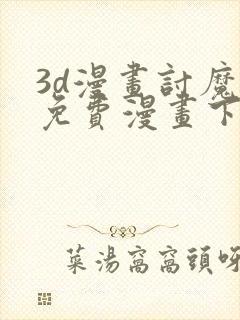 3d漫畫討魔
免費漫畫下
菜湯窩窩頭呀